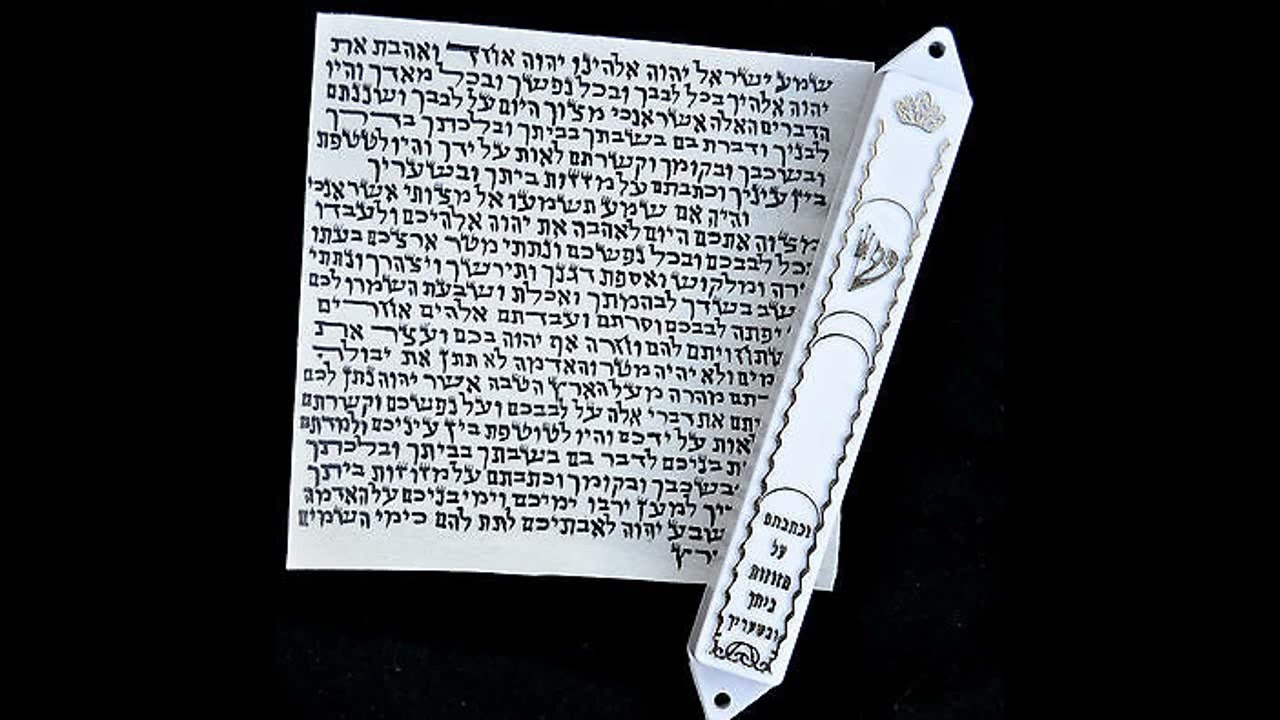 שמע ישראל יהוה אלהינו יהוה אחד ואהבת את
יהוה אלהיך בכל לבבך ובכל נפשך ובכל מאדך והיו
הדברים האלה אשר אנכי מצוך היום על לבבך ושננתם
לבניך ודברת בם בשבתך בביתך ובלכתך בדרך
ובשכבך ובקומך וקשרתם לאות על ידך והיו לטטפת
בין עיניך וכתבתם על מזזות ביתך ובשעריך
והיה אם שמע תשמעו אל מצותי אשר אנכי
מצוה אתכם היום לאהבה את יהוה אלהיכם ולעבדו
בכל לבבכם ובכל נפשכם ונתתי מטר ארצכם בעתו
ומלקוש ואספת דגנך ותירשך ויצהרך ונתתי
עשב בשדך לבהמתך ואכלת ושבעת השמרו לכם
יפתה לבבכם וסרתם ועבדתם אלהים אחרים
להם וחרה אף יהוה בכם ועצר את
ולא יהיה מטר והאדמה לא תתן את יבולה
מהרה מעל הארץ הטבה אשר יהוה נתן לכם
את דברי אלה על לבבכם ועל נפשכם וקשרתם
לאות על ידכם והיו לטוטפת בין עיניכם ולמדתם
בניכם לדבר בם בשבתך בביתך ובלכתך
ובשכבך ובקומך וכתבתם על מזוזות ביתך
למען ירבו ימיכם וימי בניכם על האדמה
יהוה לאבתיכם לתת להם כימי השמים
ש
וכתבתם
על
מזוזות
ביתך
ובשעריך